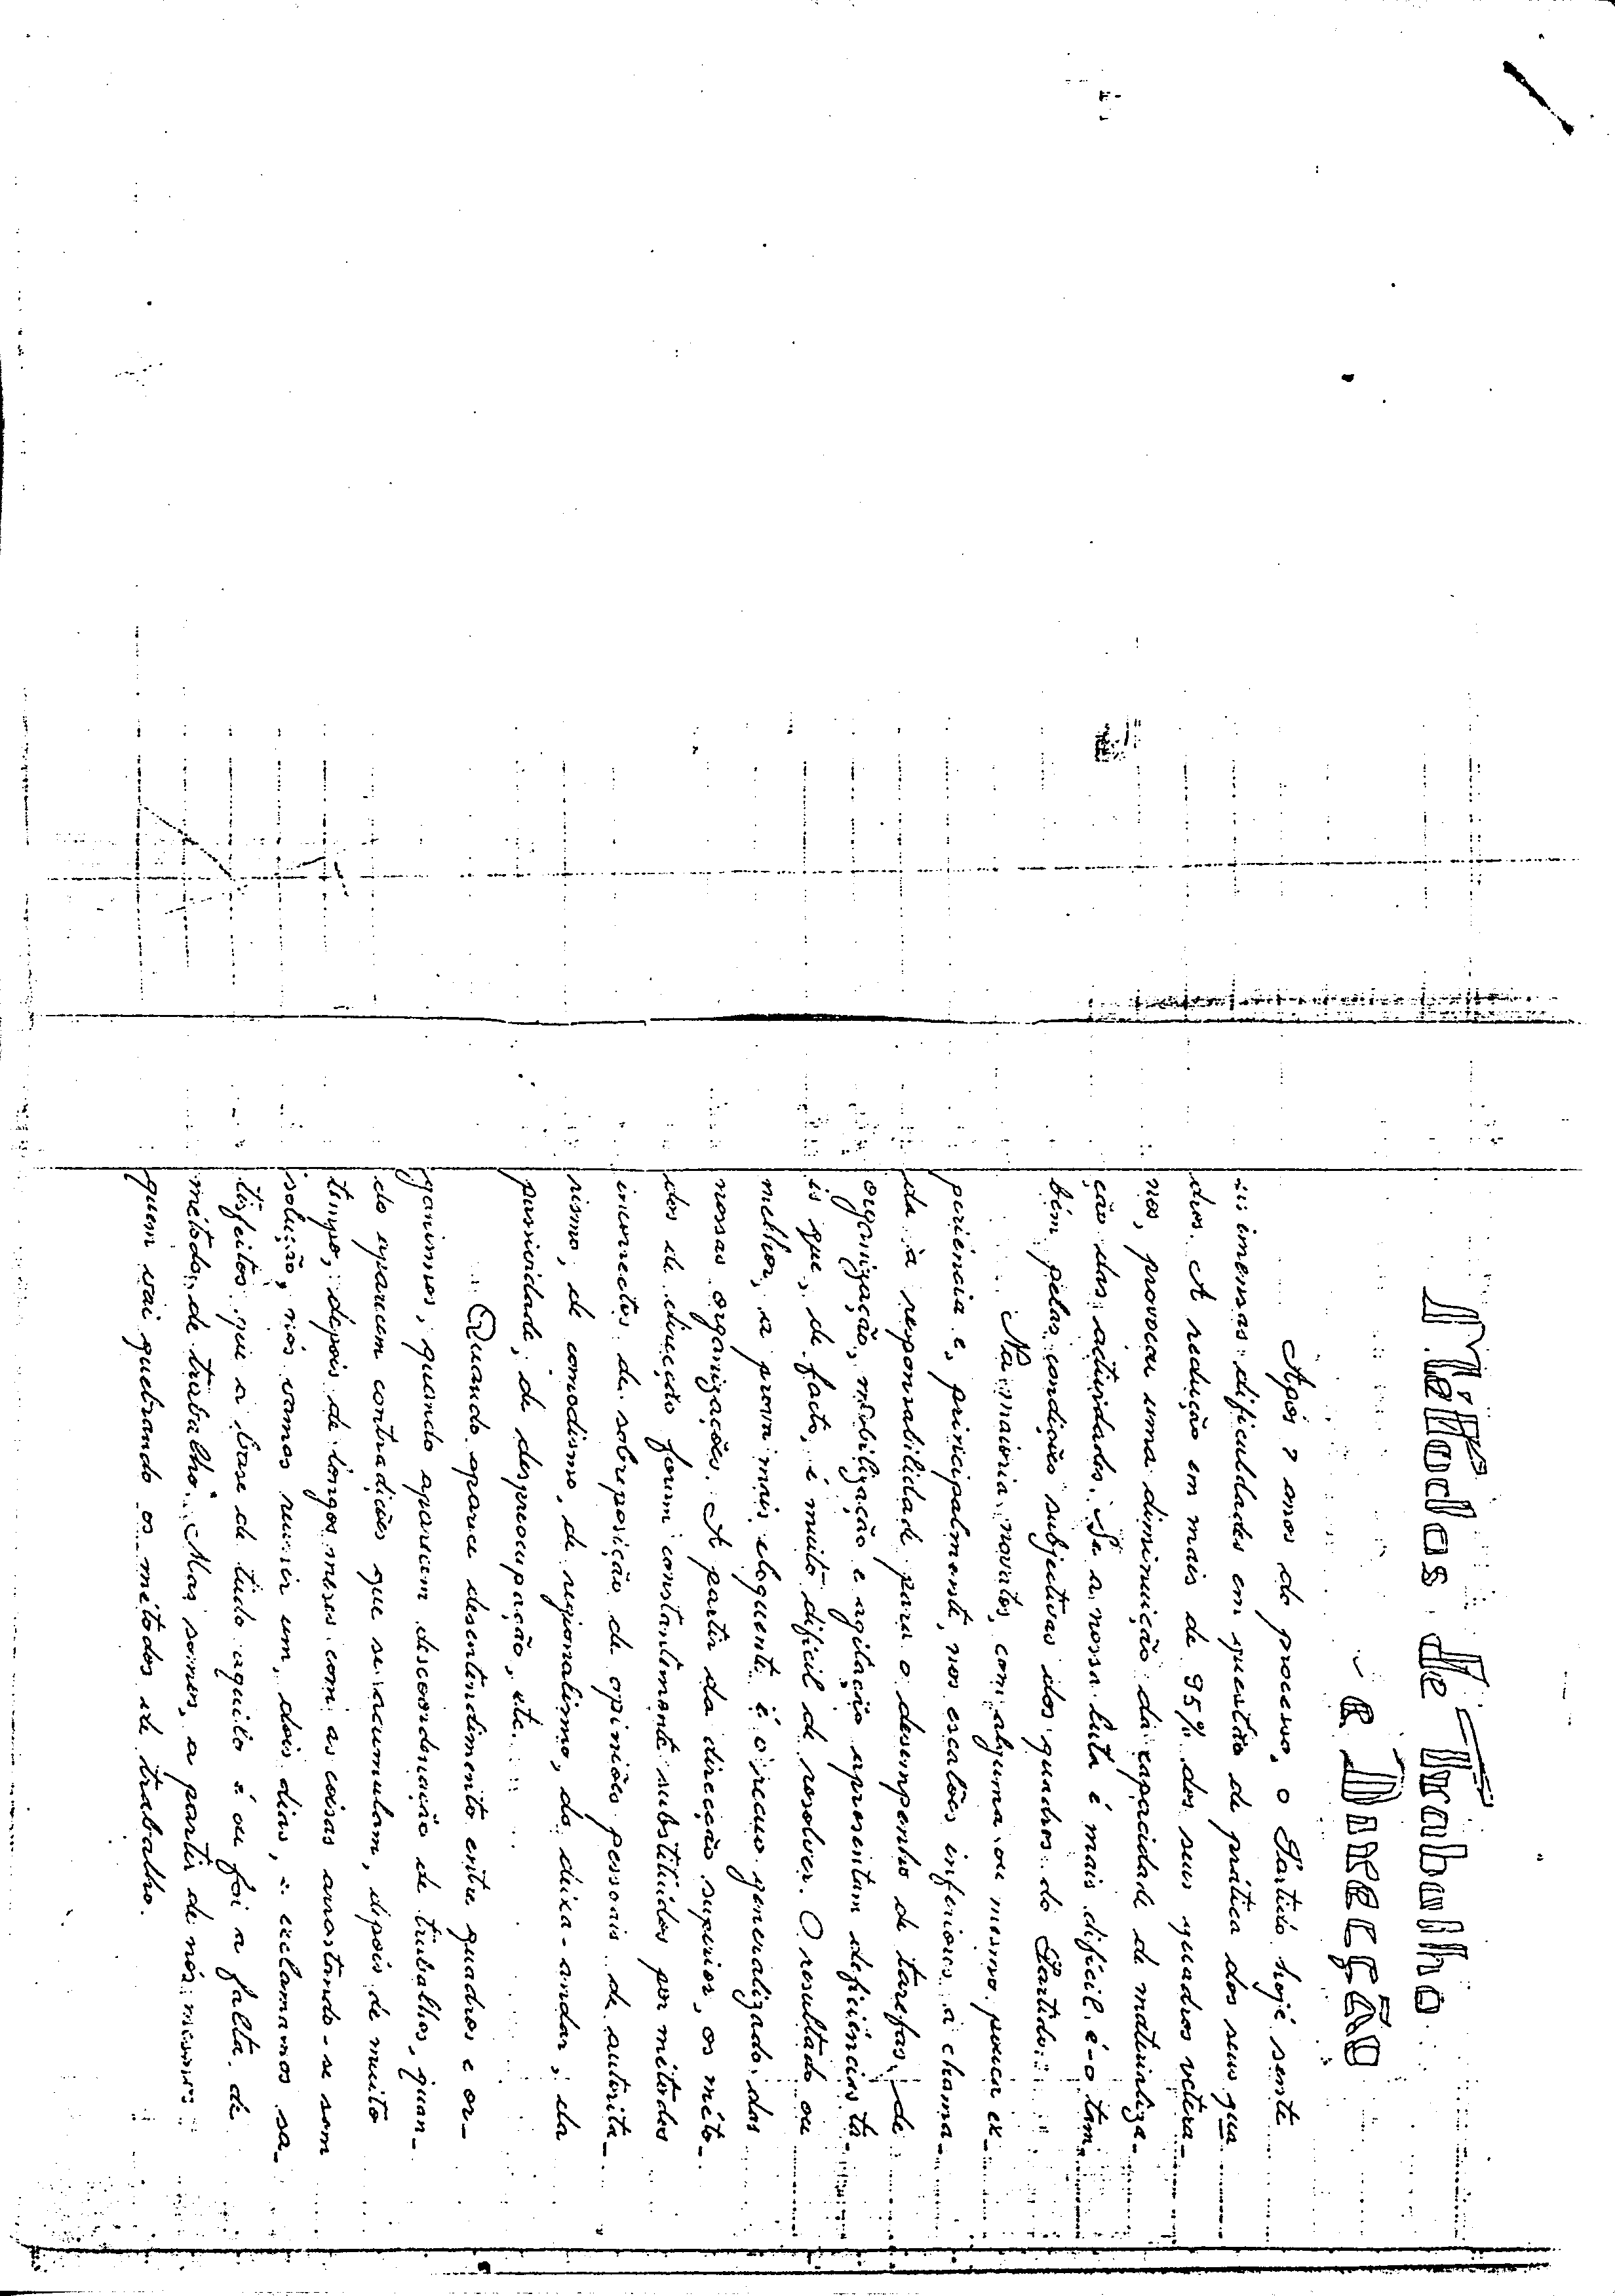 Métodos de Trabalho
e Direcção
Após 7 anos do processo, o Partido hoje sente
imensas dificuldades em questão de prática dos seus qua
dros. A redução em mais de 95% dos seus quadros vetera-
nos, provocou uma diminuição da capacidade de materializa-
ção das actividades. Se a nossa luta é mais difícil é-o tam-
bém pelas condições subjectivas dos quadros do Partido.
Na maioria novatos, com alguma ou mesmo pouca ex-
periência e, principalmente, nos escalões inferiores à chama-
da à responsabilidade para o desempenho de tarefas, de
organização, mobilização e agitação apresentam deficiências ta-
is que, de facto, é muito difícil de resolver. O resultado ou
melhor, a prova mais eloquente é o recuo generalizado das
nossas organizações. A partir da direcção superior, os méto-
dos de direcção foram constantemente substituídos por métodos
incorrectos da sobreposição de opiniões pessoais de autorita-
rismo, de comodismo, de regionalismo, do deixa-andar, da
passividade, de despreocupação, etc.
Quando aparece desentendimento entre quadros e or-
ganismos, quando aparecem descoordenação de trabalhos, quan-
do aparecem contradições que se acumulam, depois de muito
tempo, depois de longos meses com as coisas arrastando-se sem
solução, nós vamos reunir um, dois dias, e exclamamos sa-
tisfeitos que a base de tudo aquilo é ou foi a falta de
método de trabalho. Mas somos, a partir de nós mesmos
quem vai quebrando os métodos de trabalho.